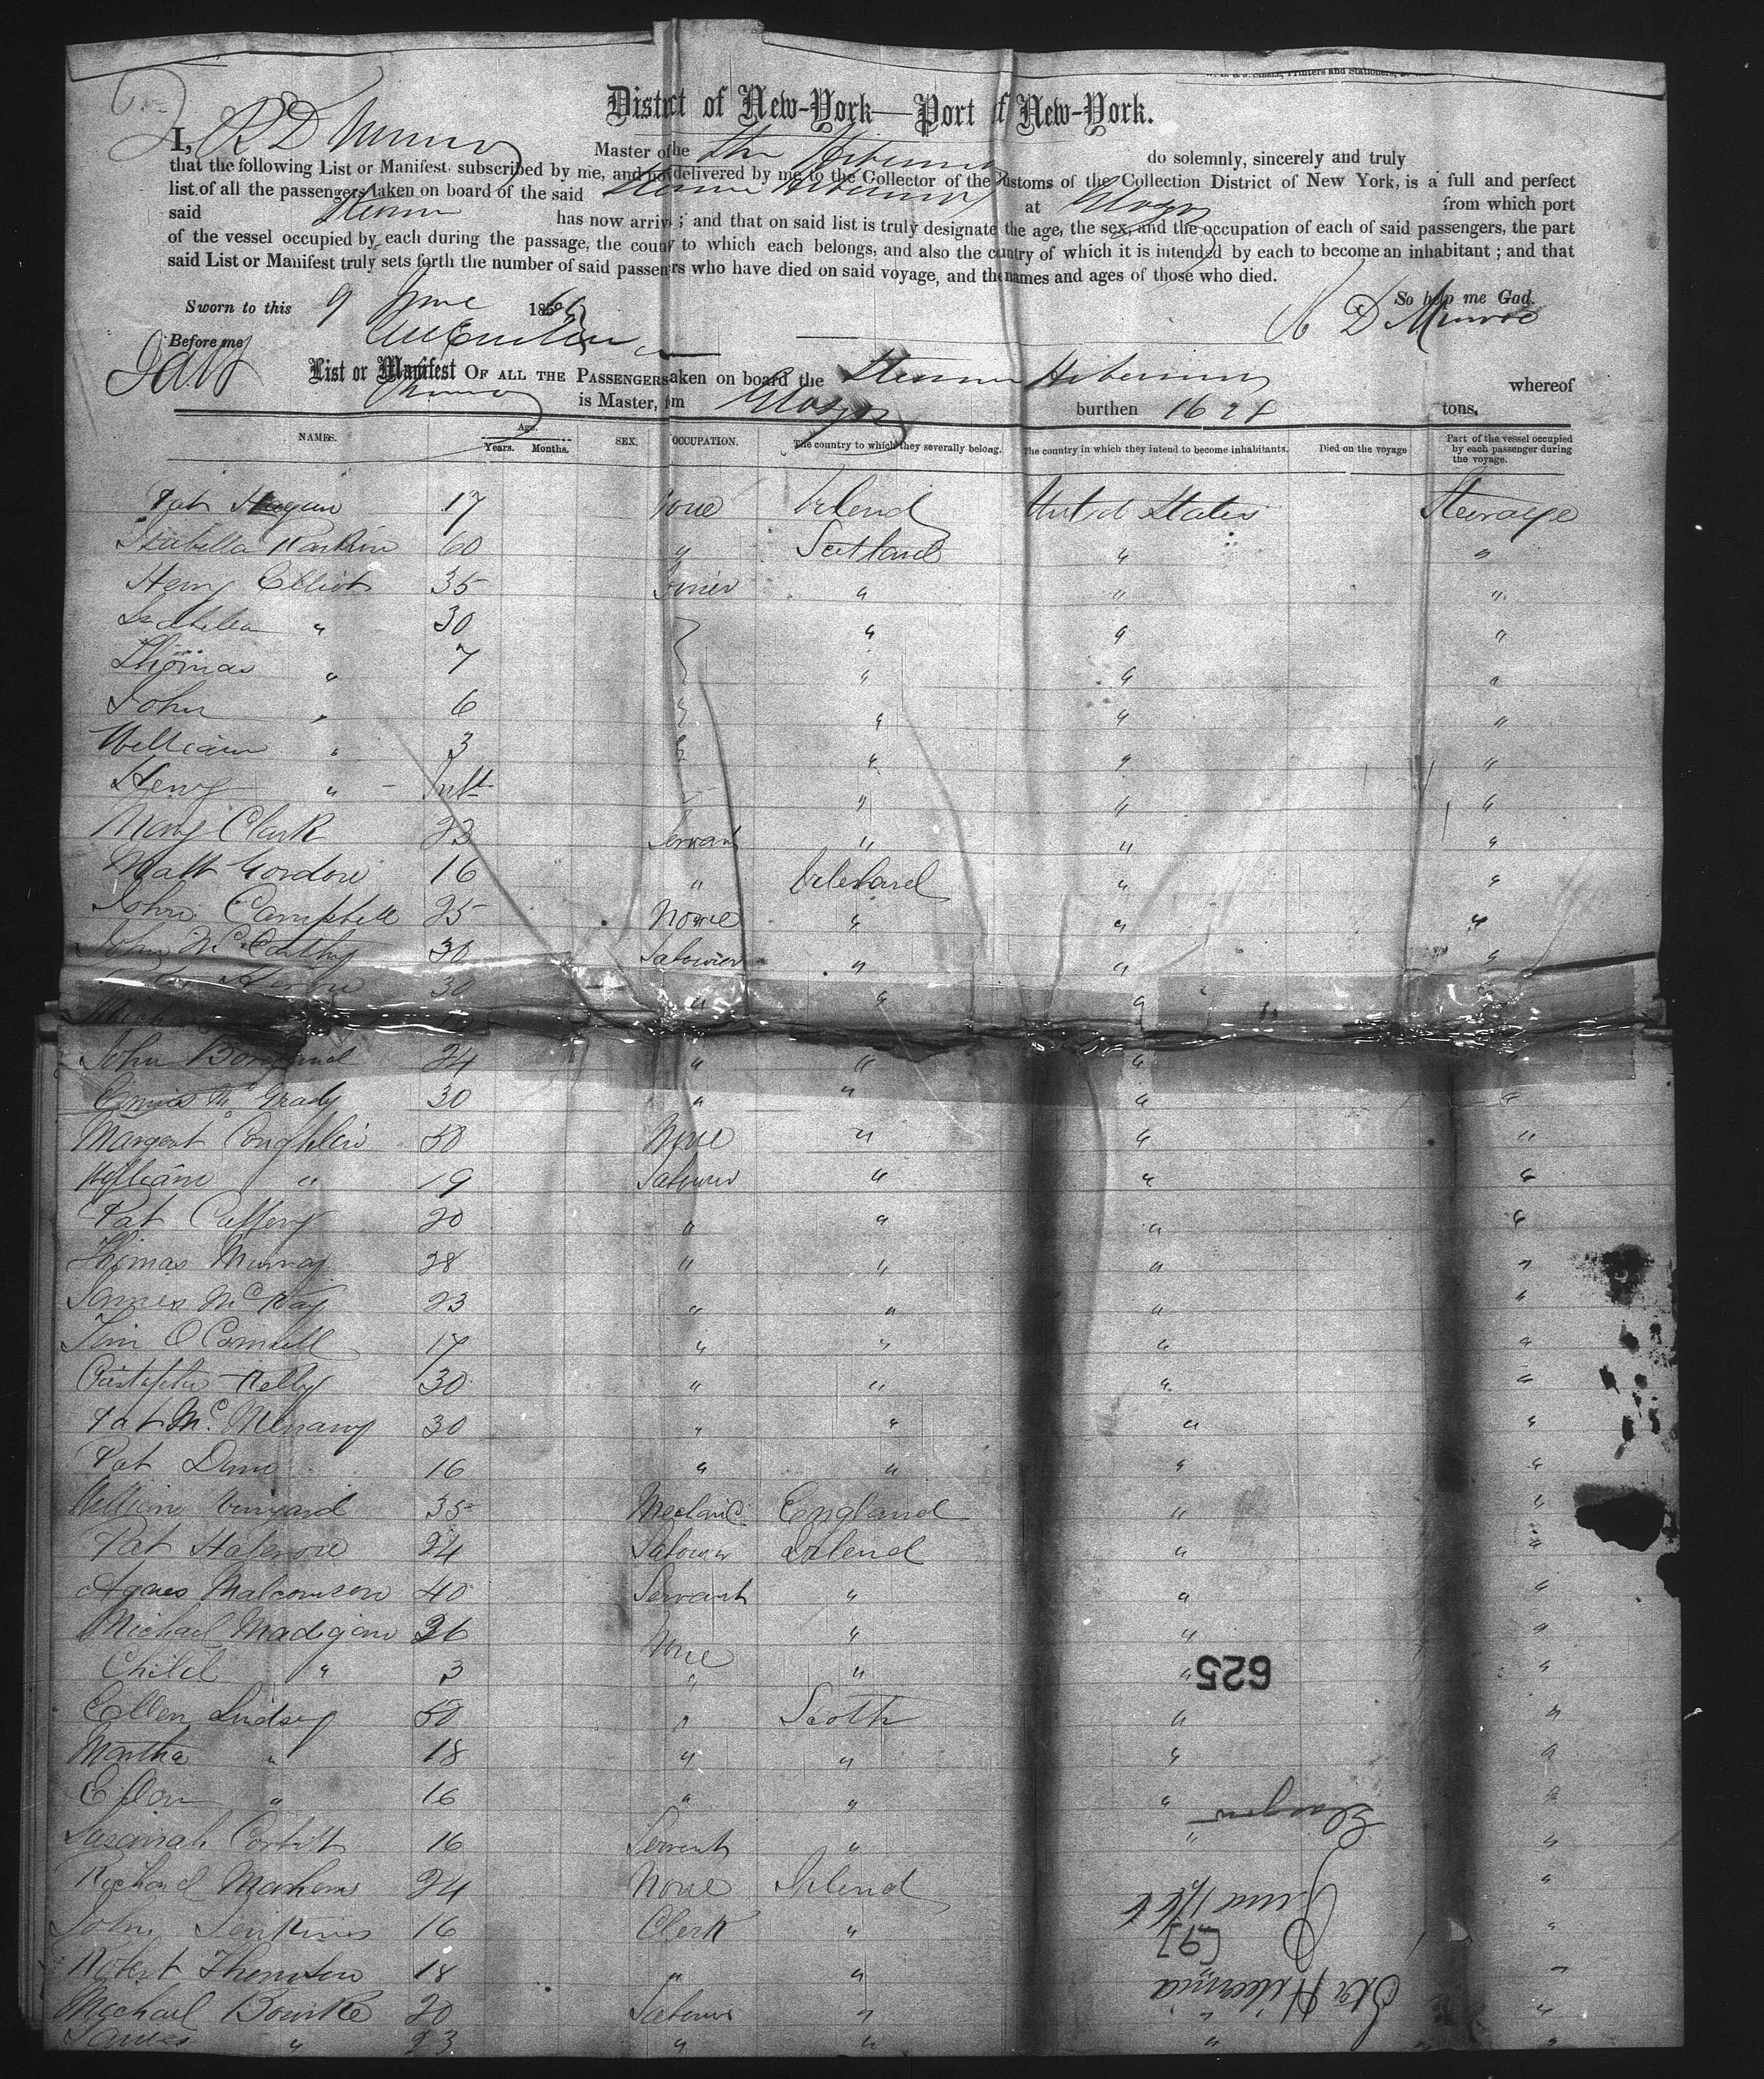 District of New-York—Port of New-York.
I, R D Munro Master of the Str Hibernia do solemnly, sincerely and truly
that the following List or Manifest, subscribed by me, and now delivered by me to the Collector of the Customs of the Collection District of New York, is a full and perfect
list of all the passengers taken on board of the said Steamer Hibernia at Glasgow from which port
said Steamer has now arrived; and that on said list is truly designated the age, the sex, and the occupation of each of said passengers, the part
of the vessel occupied by each during the passage, the country to which each belongs, and also the country of which it is intended by each to become an inhabitant; and that
said List or Manifest truly sets forth the number of said passengers who have died on said voyage, and the names and ages of those who died.
So help me God.
Sworn to this 9 June 186
R D Munro
Before me
List or Manifest OF ALL THE PASSENGERS taken on board the Steamer Hibernia whereof
Munro is Master, from Glasgow burthen 1624 tons.
NAMES. Age. Years. Months. SEX. OCCUPATION. The country to which they severally belong. The country in which they intend to become inhabitants. Died on the voyage Part of the vessel occupied by each passenger during the voyage.
Pat Hagan 17 None Ireland United States Steerage
Isabella Rankin 60 " Scotland " "
Henry Elliot 35 Joiner " " "
Isabella " 30 " " "
Thomas " 7 " " "
John " 6 " " "
William " 3 " " "
Henry " - Inft " " "
Mary Clark 23 Servant " " "
Matt Gordon 16 " Ireland " "
John Campbell 25 None " " "
John McCarthy 30 Labourer " " "
30 " " " "
John 24 " " "
McGrady 30 " " " "
Margaret Coughlin 50 None " " "
William " 19 Labourer " " "
Pat Caffery 20 " " " "
Thomas Murray 28 " " " "
James McKay 23 " " " "
Tim O Connell 17 " " " "
Cristopher Kelly 30 " " " "
Pat Mc 30 " " " "
Pat Dunn 16 " " " "
William Vinyard 35 Mechanic England " "
Pat 24 Labourer Ireland " "
Agnes Malcomson 40 Servant " " "
Michael Madigan 36 None " " "
Child " 3 " " " "
625
Ellen Lindsey 50 " Scoth " "
Martha " 18 " " " "
Ellen " 16 " " " "
Glasgow
Susannah Corbitt 16 Servant " " "
Richard 24 None Ireland "
John Jenkins 16 Clerk " "
Robert 18 " " "
Str Hibernia
Michael Bourke 20 Labourer " " "
James " 23 " " " "